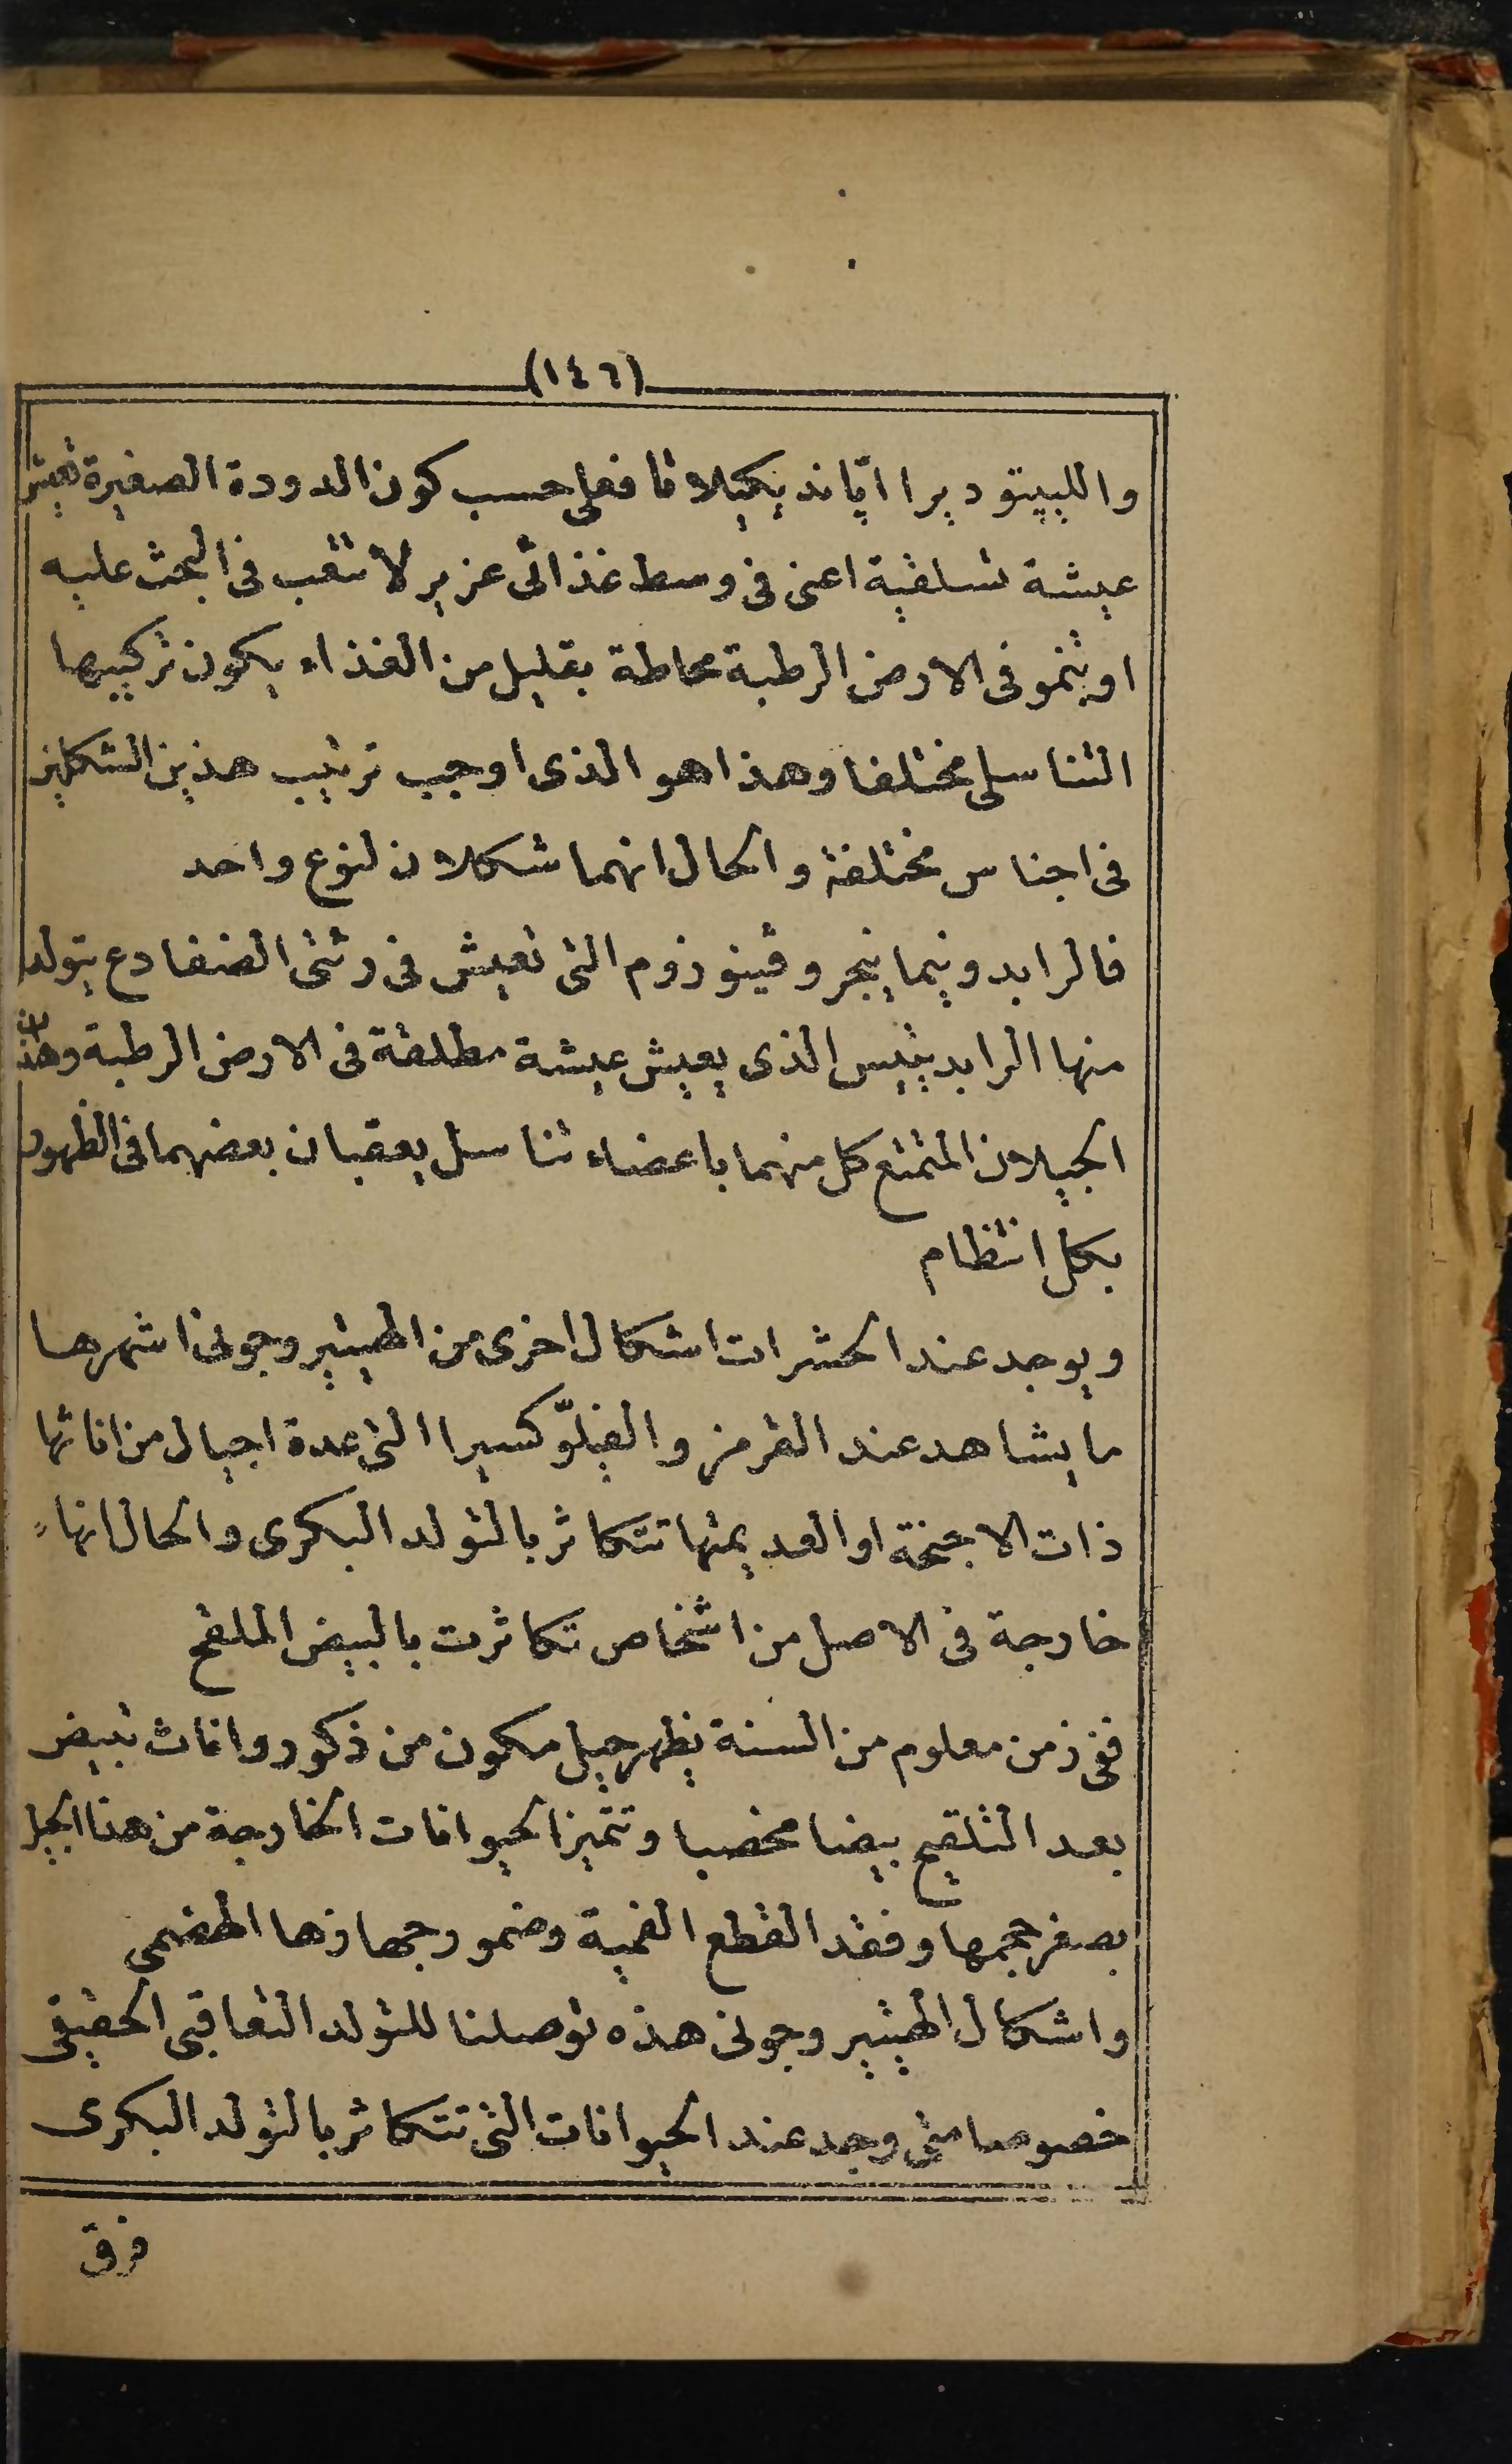 (١٤٦)
واللبيتوديرا اپاند يكيلاتا فعلى حسب كون الدودة الصغيرة تعيش
عيشة تسلقية اعنى فى وسط غذائى عزير لا تتعب فى البحث عليه
او تنمو فى الارض الرطبة محاطة بقليل من الغذاء يكون تركيبها
التناسلى مختلفا وهذا هو الذى اوجب ترتيب هذين الشكلين
فى اجناس مختلفة والحال انهما شكلان لنوع واحد
فالرابدونيما نيجروڤينوزوم التى تعيش فى رئتى الضفادع يتولد
منها الرابديتيس الذى يعيش عيشة مطلقة فى الارض الرطبة وهذان
الجيلان المتمتع كل منهما باعضاء تناسل يعقبان بعضهما فى الظهور
بكل انتظام
ويوجد عند الحشرات اشكال اخرى من الهيتيروجونى اشهرها
ما يشاهد عند القرمز والفيلوّكسيرا التى عدة اجيال من اناثها
ذات الاجنحة او العديمتها تتكاثر بالتولد البكرى والحال انها
خارجة فى الاصل من اشخاص تكاثرت بالبيض الملقح
ففى زمن معلوم من السنة يظهر جيل مكون من ذكور واناث تبيض
بعد التلقيح بيضا مخصبا وتتميز الحيوانات الخارجة من هذا الجيل
بصغر حجمها وفقد القطع الفمية وضمور جهازها الهضمى
واشكال الهيتيروجونى هذه توصلنا للتولد التعاقبى الحقيقى
خصوصا متى وجد عند الحيوانات التى تتكاثر بالتولد البكرى
فرق